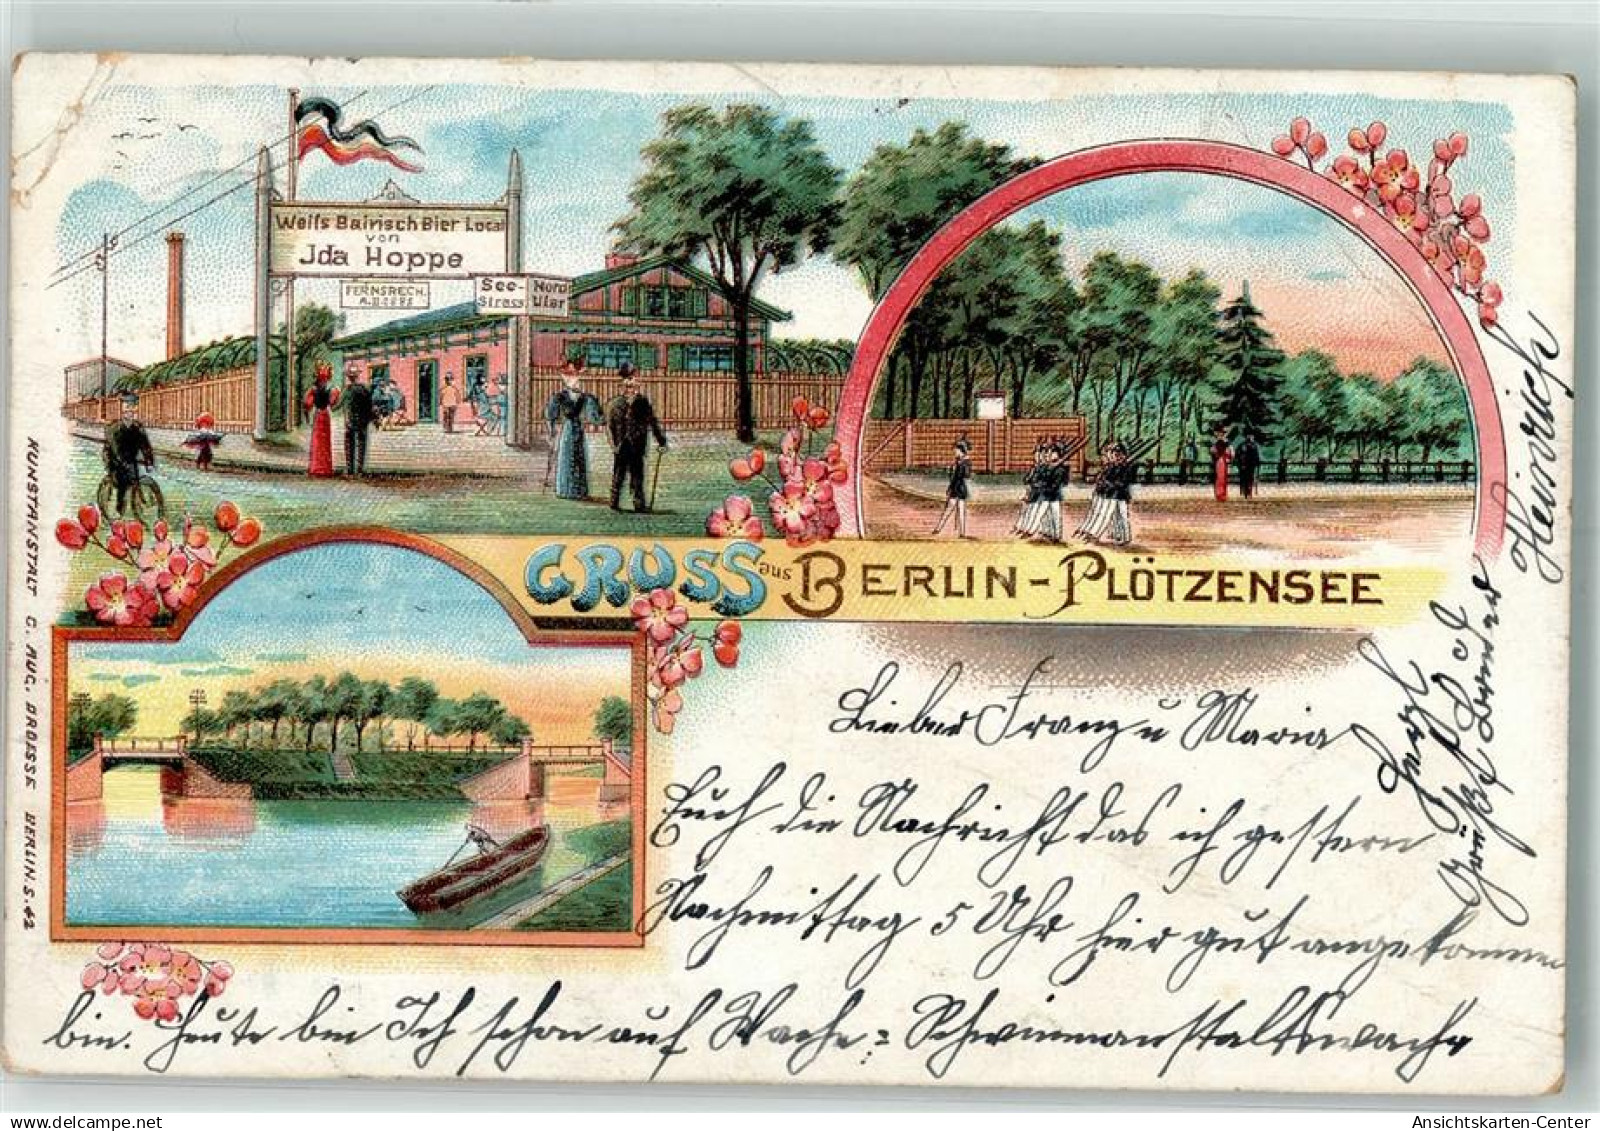 Weiss Bairisch Bier Local
von
Jda Hoppe
FERNSPRECH.
See-
Strass
Nord
Ufer
GRUSS aus BERLIN-PLÖTZENSEE
KUNSTANSTALT C. AUG. DROESSE BERLIN.S.42
Lieber Franz u Maria
Euch die Nachricht das ich gestern
Nachmittag 5 Uhr hier gut angekommen
bin. Heute bin Ich schon auf Wache = Schwimmanstaltswache
Herzl
Grüße
Bruder
Heinrich
Ansichtskarten-Center